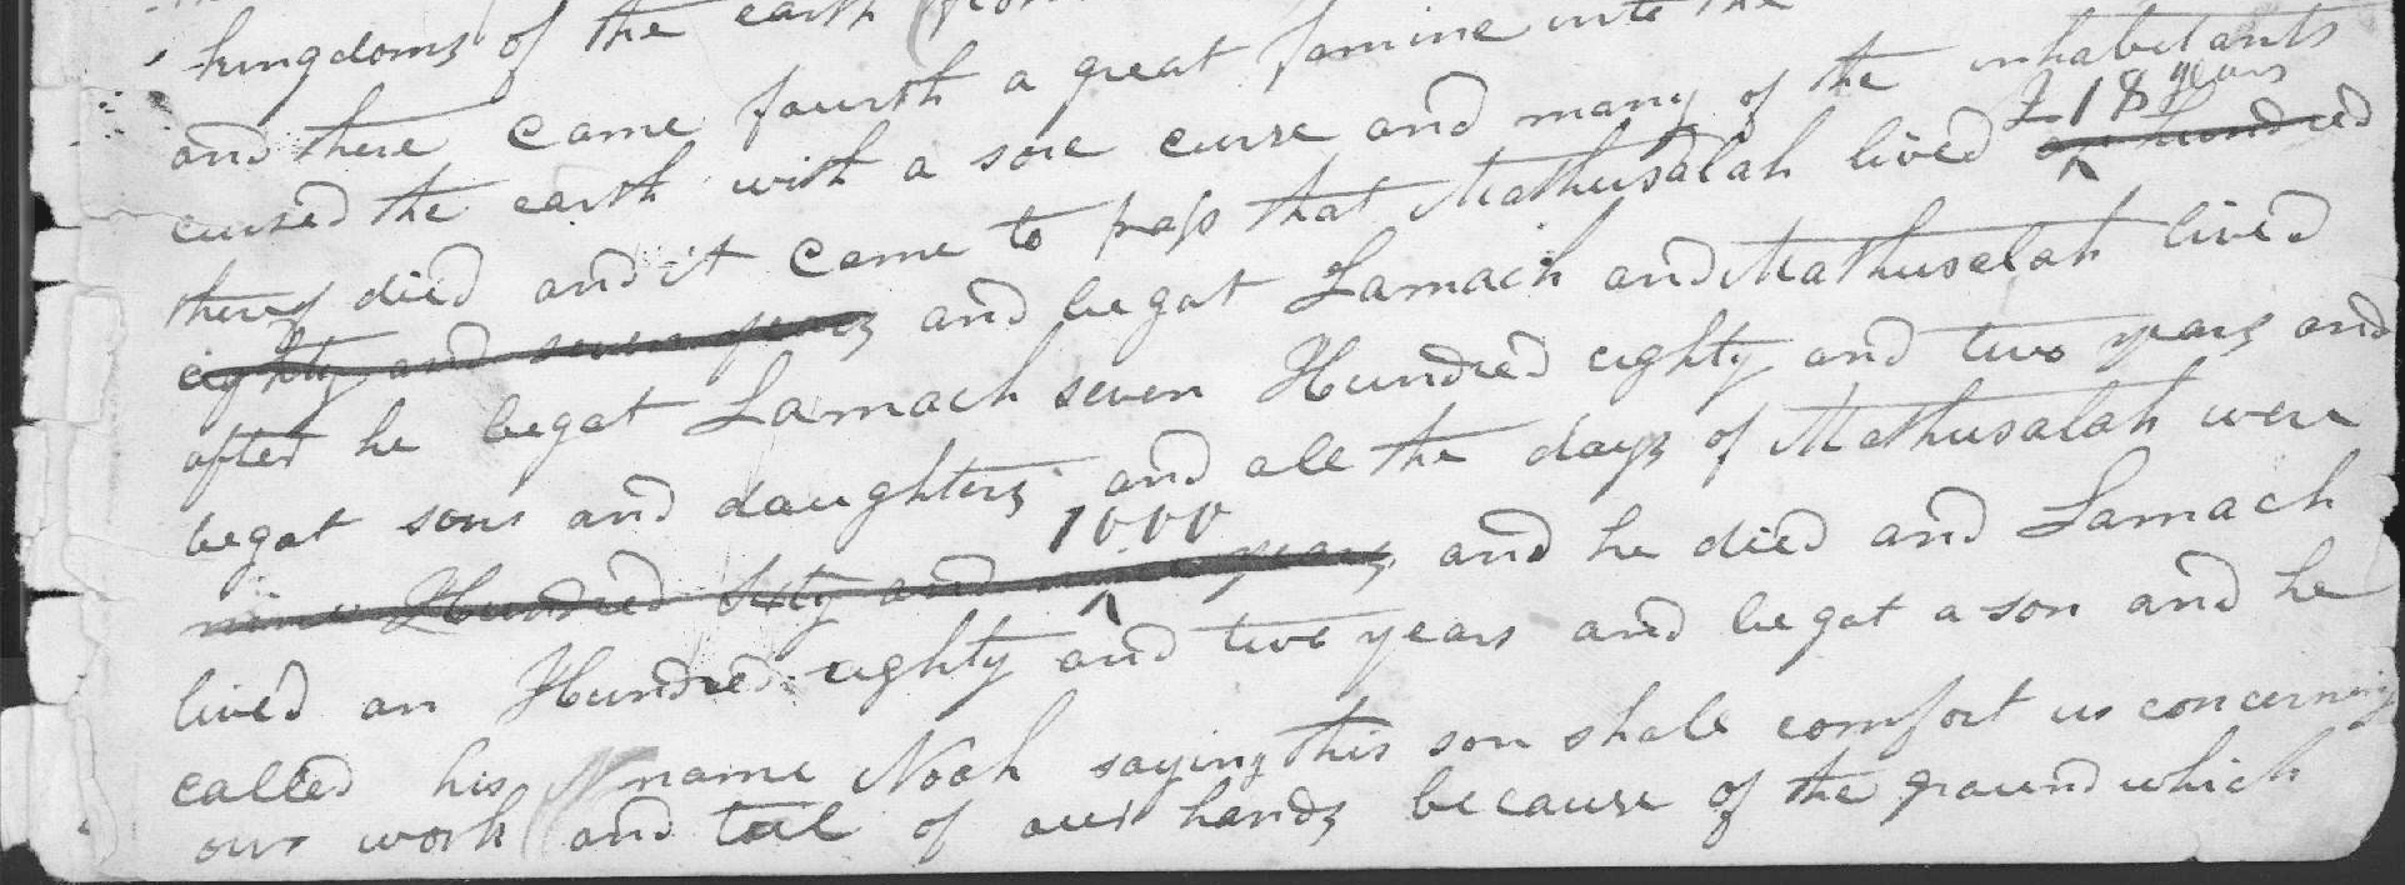 kingdoms of the earth
and there came fourth a great famine into the
cursed the earth with a sore curse and many of the inhabitants
218 years
therof died and it came to pass that Mathusalah lived an hundred
eighty and seven years and begat Lamach and Mathuselah lived
after he begat Lamach seven Hundred eighty and two years and
begat sons and daughters and all the days of Mathusalah were
1000
nine Hundred Sixty and nine years and he died and Lamach
lived an Hundred eighty and two years and begat a son and he
called his name Noah saying this son shall comfort us concerning
our work and toil of our hands because of the ground which